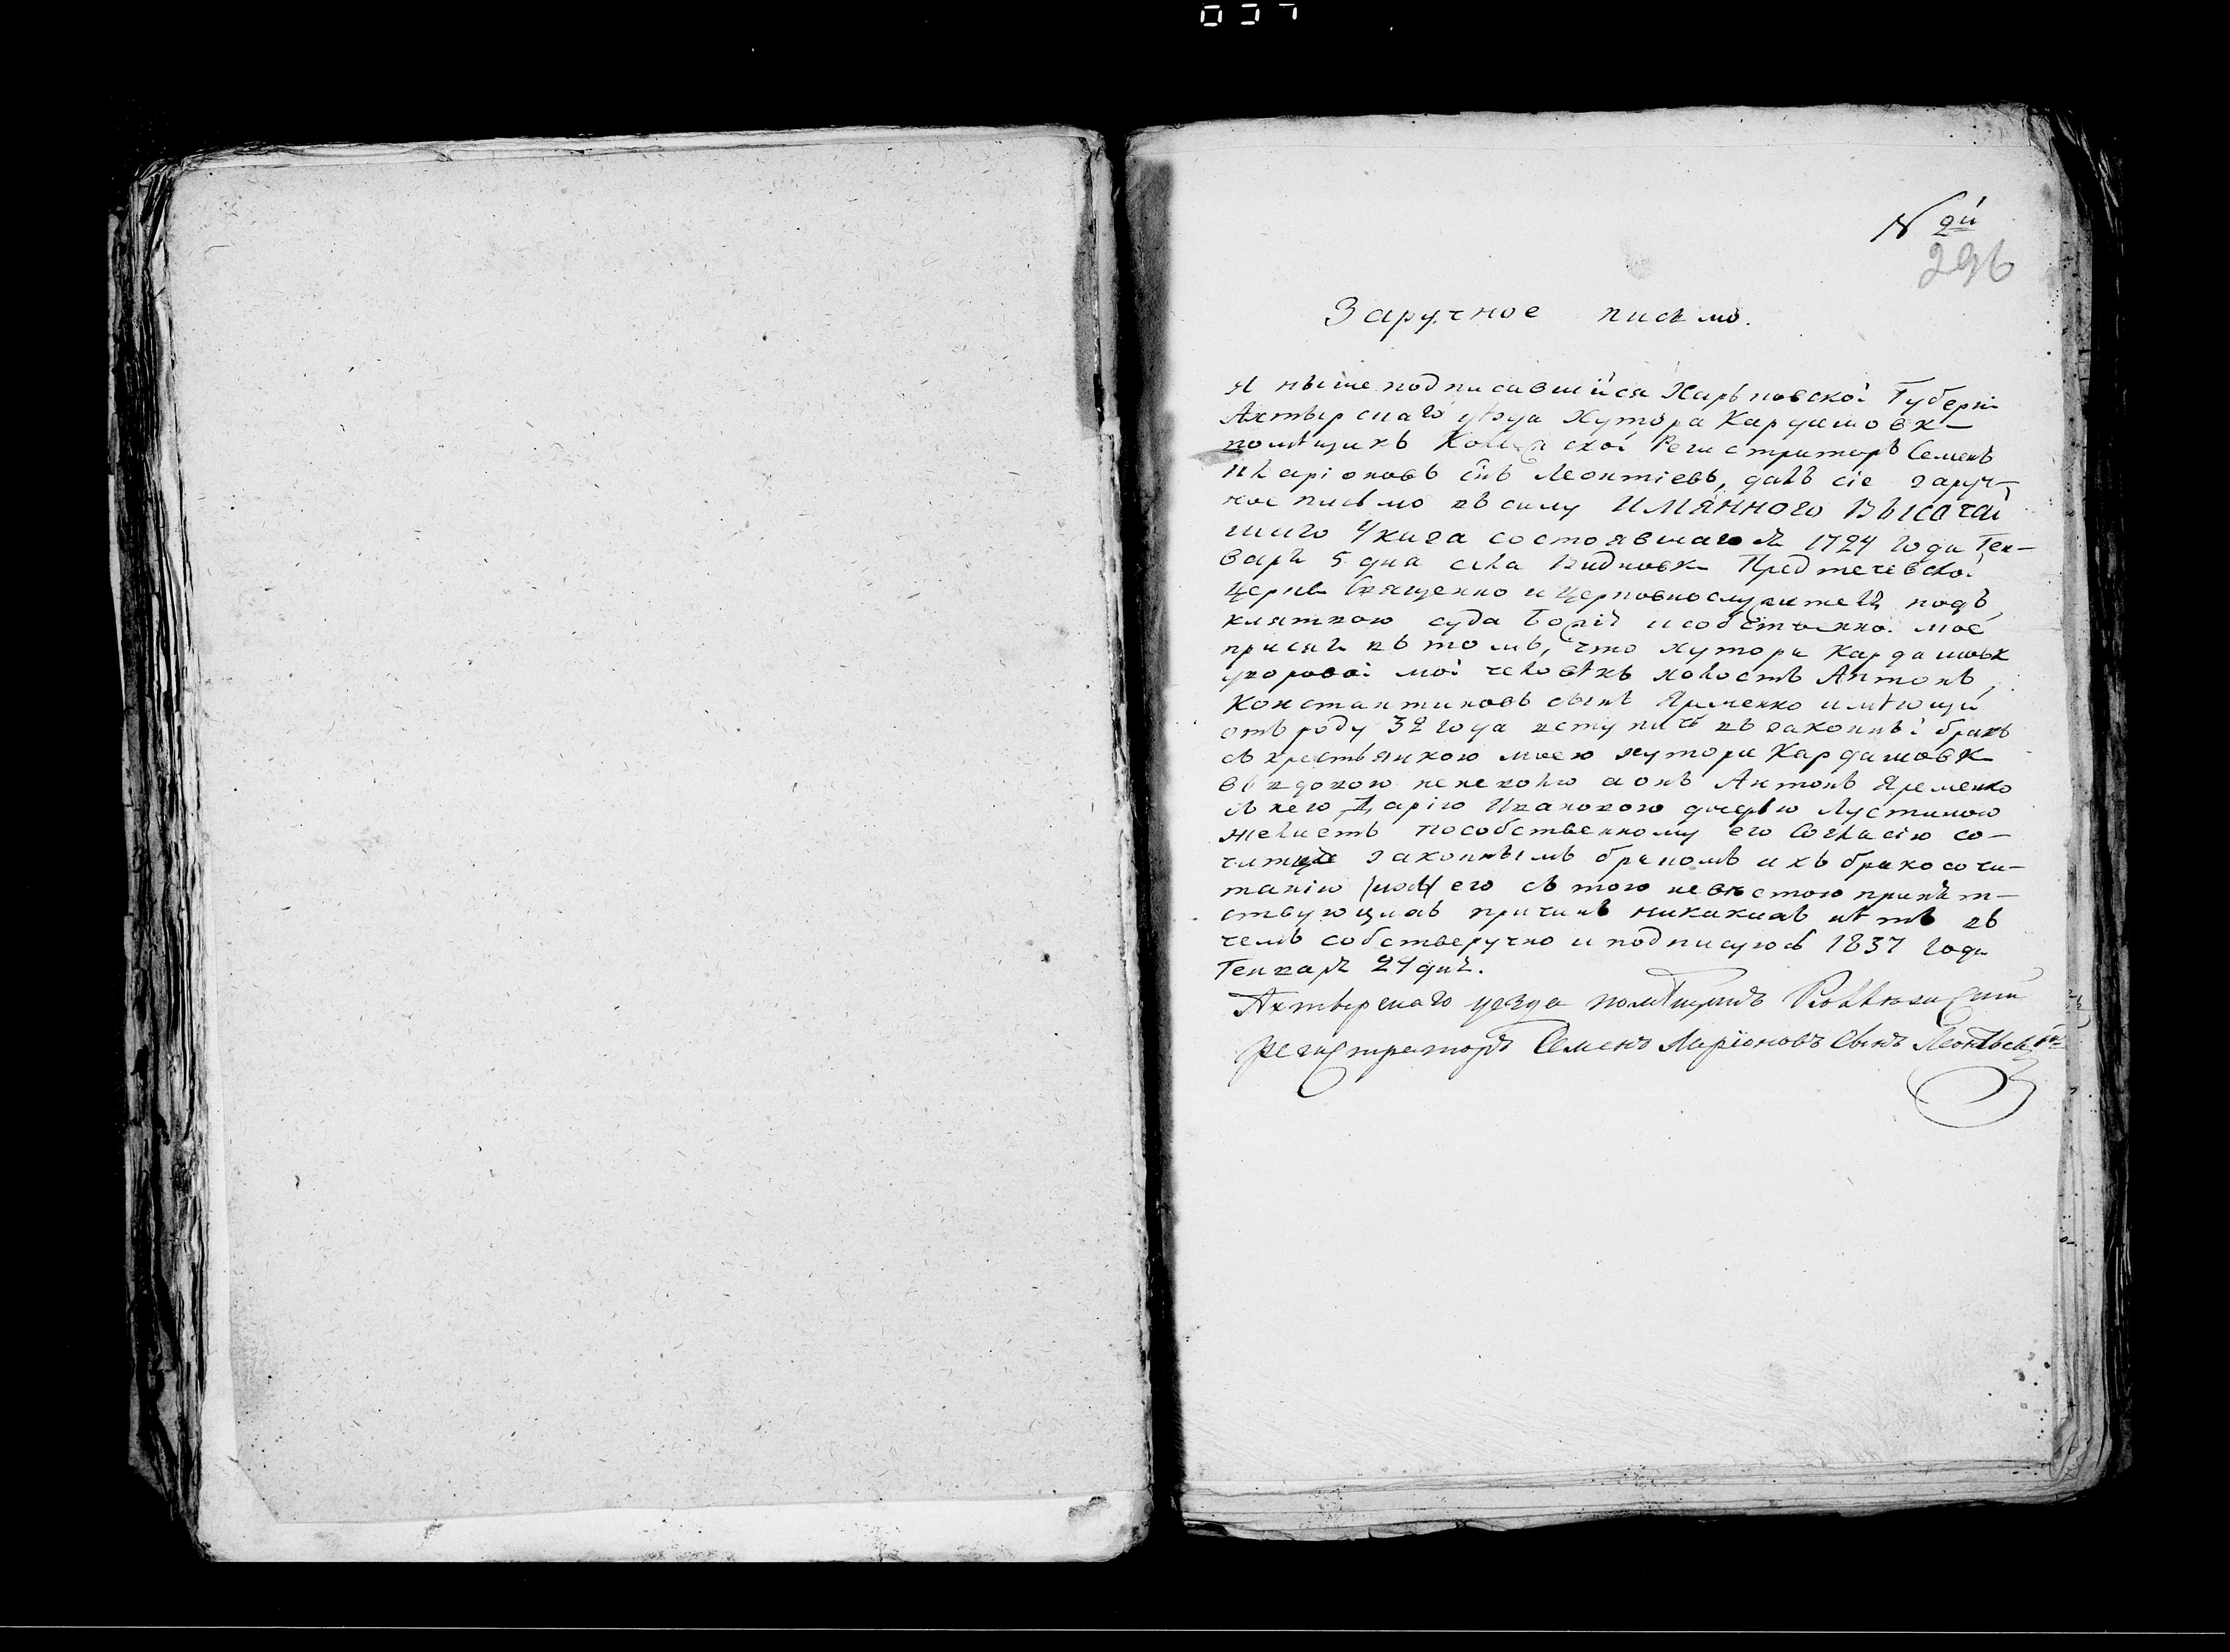 037
N 2й
296
Заручное письмо.
Я ныше подписавшійся Харьковской Губерніи
Ахтырскаго уѣзда Хутора Кардашовки
помѣщикъ Регистраторъ Семенъ
Иларіоновъ снъ Леонтіевъ, далъ сіе заруч-
ное письмо въ силу ИМЯННОГО ВЫСОЧАЙ
шаго Указа состоявшаго 1724 года Ген-
варя 5 дня села Видновки Предтечевской
Церкви Священно и Церковнослужителя подъ
клятвою суда Божія и собственно моей
присяги въ томъ, что хутора Кардашовки
дворовой мой человѣкъ холостъ Антонъ
Константиновъ сынъ Яременко имѣющій
отъ роду 32 года вступитъ въ законный бракъ
съ крестьянкою моею хутора Кардашовки
вдовою не неволю а онъ Антонъ Яременко
съ нею Даріею Ивановою дочерью
желаетъ пособственному его Согласію со-
законнымъ бракомъ и къ бракосочи-
танію его съ тою невѣстою препят-
ствующихъ причинъ никакихъ нѣтъ въ
чемъ собстверучно и подписуюсь 1837 года
Генваря 24 дня.
Ахтырскаго уезда помѣщикъ
регистраторъ Семенъ Ларіоновъ Сынъ Леонтьевъ